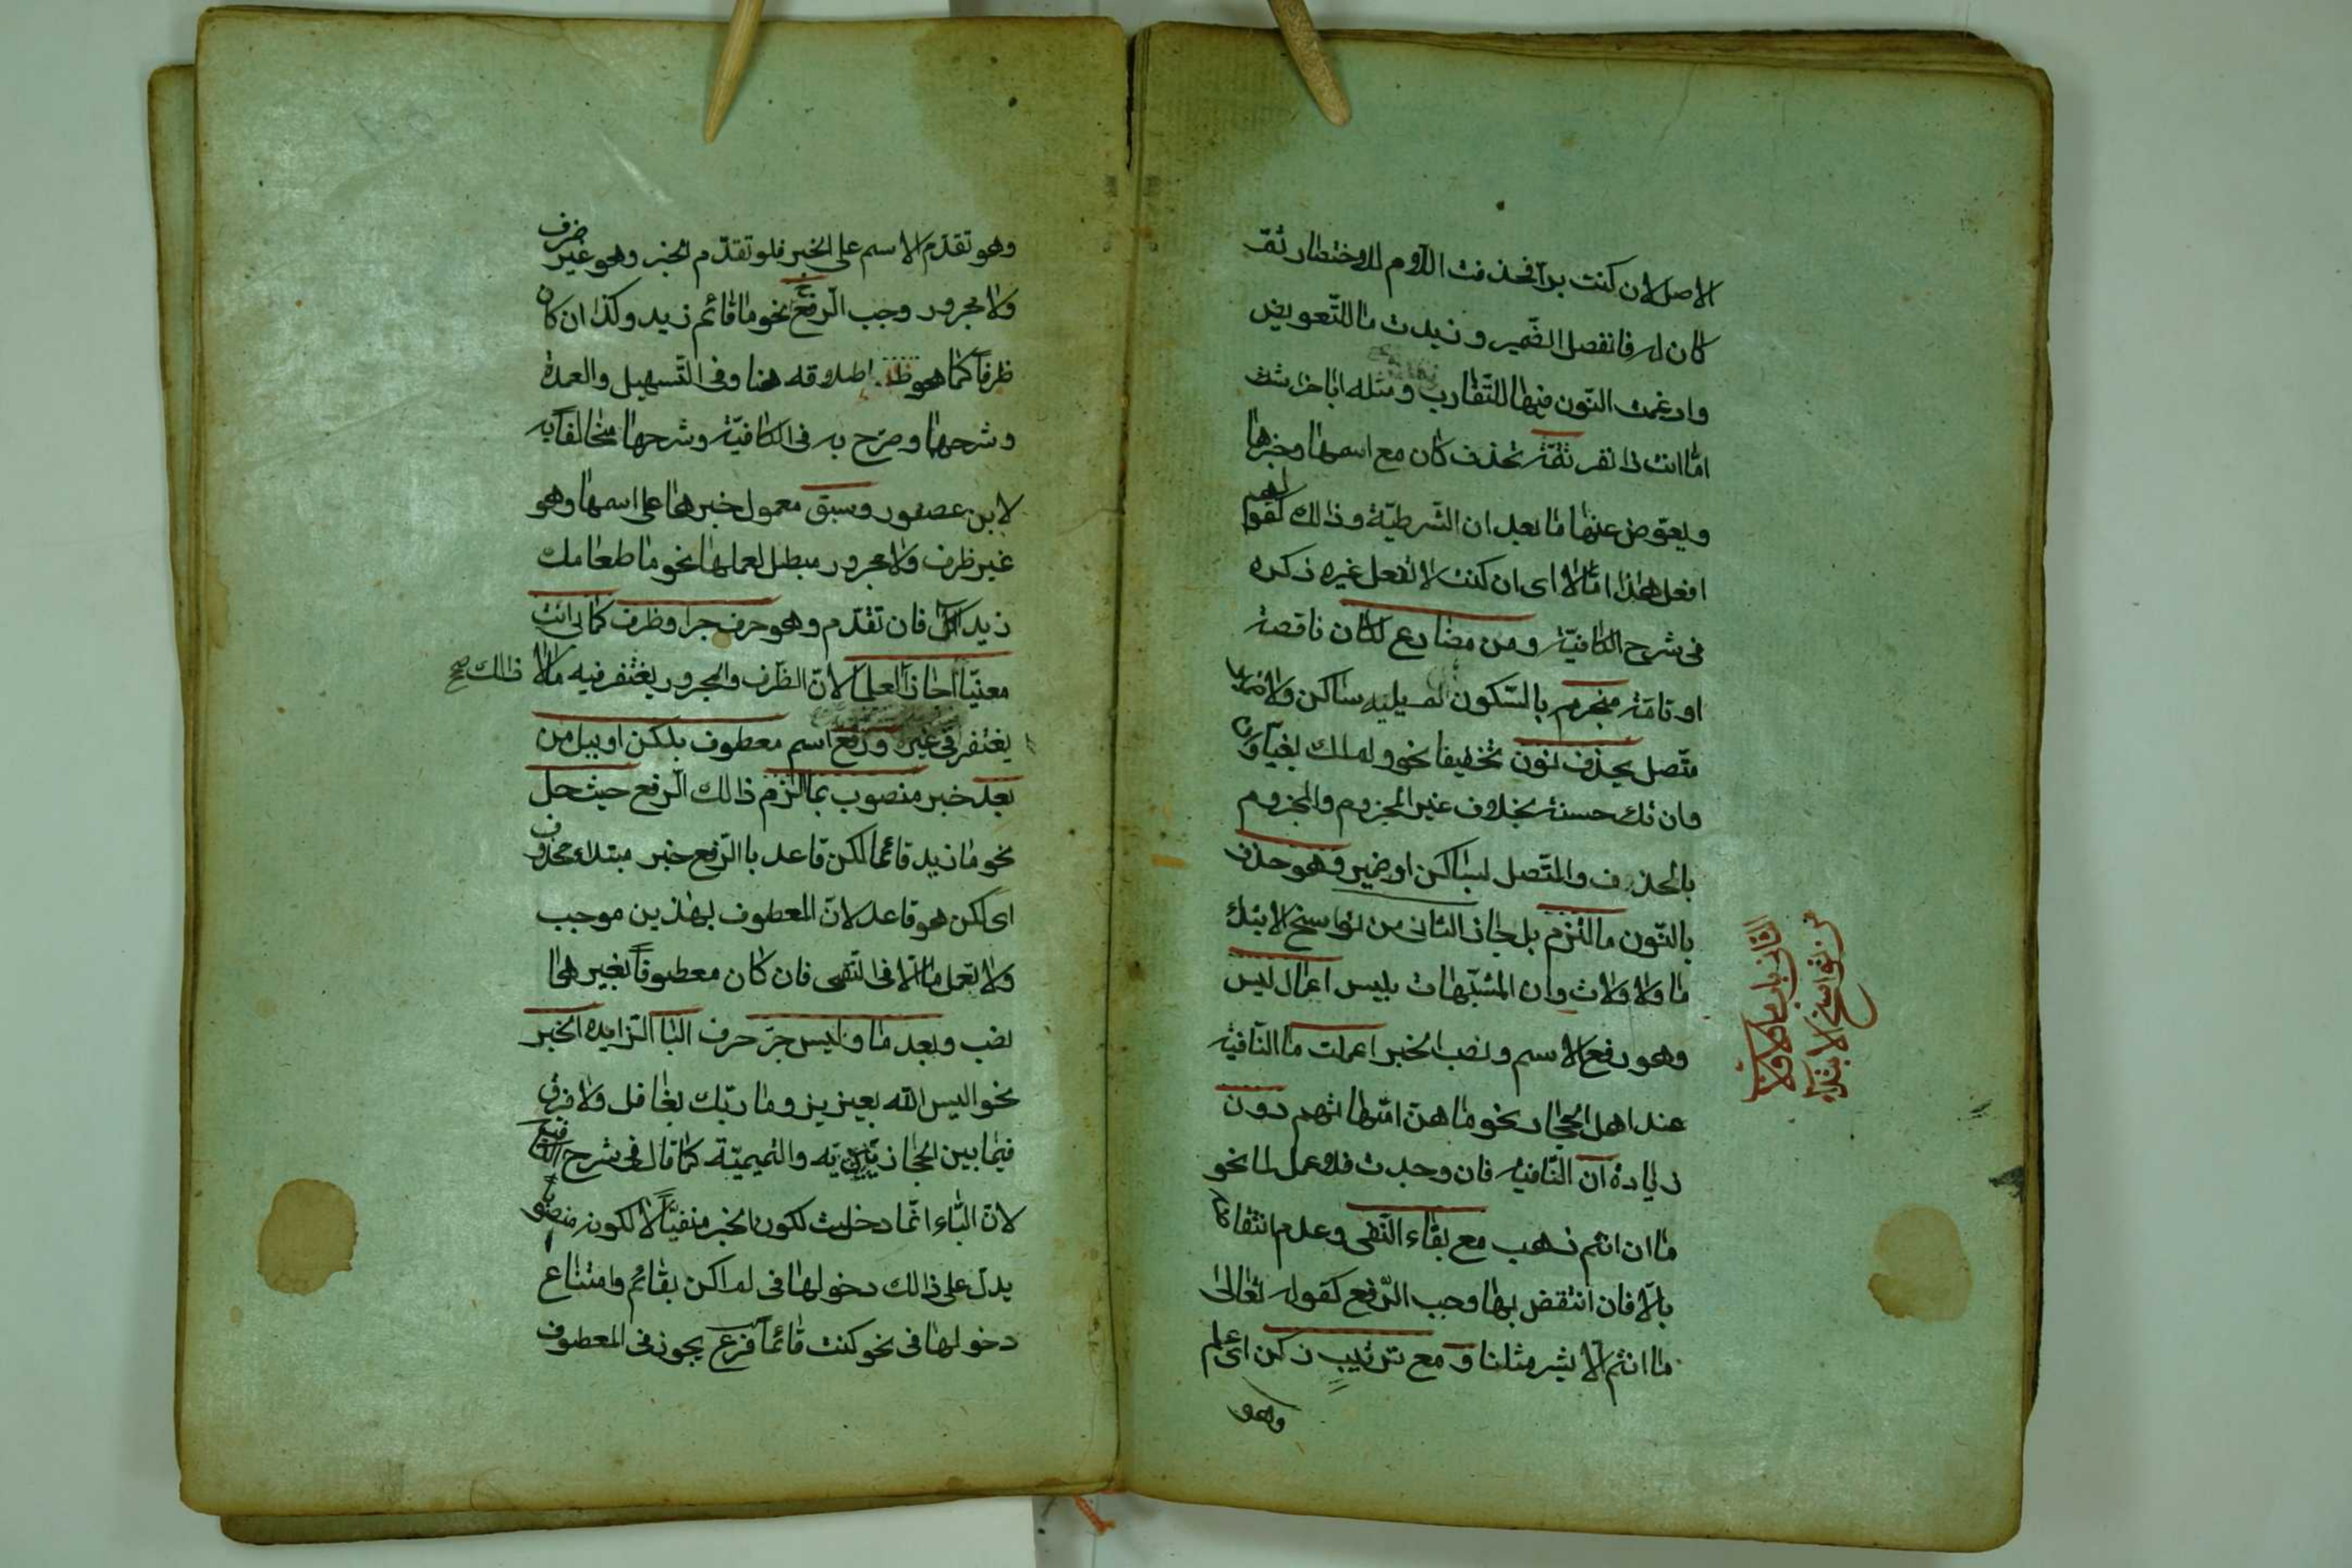 الاصل لان كنت برا فحذفت اللام للاختصار ثمّ
كان له فانفصل الضّمير وزيدت ما للتّعويض
وادغمت النّون فيها للتّقارب ومثله ابا خراشة
امّا انت ذا نفر تتمّة تحذف كان مع اسمها وخبرها
ويعوّض عنها ما بعد ان الشّرطيّة وذالك كقولهم
افعل هذا امّا لا اى ان كنت لا تفعل غيره ذكره
فى شرح الكافيّة ومن مضارع لكان ناقصة
او تامّة منجزم بالسّكون لم يليه ساكن ولا ضمير
متّصل يحذف نون تخفيفا نحو ولم اك بغيّا و
وان تك حسنة بخلاف غير المجزوم والمجزوم
بالحذف والمتّصل بساكن او ضمير وهو حذف
بالنّون ما التزم بل جاز الثانى من نواسخ الابتداء
ما ولا ولات وان المشبّهات بليس اعمال ليس
وهو رفع الاسم ونصب الخبر اعملت ما النّافية
عند اهل الحجاز نحو ما هنّ امّهاتهم دون
زيادة ان النّافية فان وجدت فلا عمل لما نحو
ما ان انتم ذهب مع بقاء النّفى وعدم انتقاضه
بالّا فان انتقض بها وجب الرّفع كقوله تعالى
ما انتم الّا بشر مثلنا و مع ترتيب زكن اى علم
وهو
الثانى باب ما ولا ولات
من نواسخ الابتداء
وهو تقدّم الاسم على الخبر فلو تقدّم الخبر وهو غير ظرف
ولا مجرور وجب الرّفع نحو ما قائم زيد وكذا ان كان
ظرفاً كما هو ظا. اطلاقه هنا وفى التّسهيل والعمدة
وشرحهما وصرّح به فى الكافيّة وشرحها مخالفا به
لابن عصفور وسبق معمول خبرها على اسمها وهو
غير ظرف ولا مجرور مبطل لعملها نحو ما طعامك
زيد اكل فان تقدّم وهو حرف جرا وظرف كما بى انت
معنيّا اجاز العلما لانّ الظّرف والمجرور يغتفر فيه ما لا
ذالك صح
يغتفر فى غيره ورفع اسم معطوف بلكن او ببل من
بعد خبر منصوب بما الزم ذالك الرّفع حيث حل
نحو ما زيد قائما لكن قاعد با الرّفع خبر مبتداء محذوف
اى لكن هو قاعد لانّ المعطوف بهذين موجب
ولا تعمل ما الّا فى النّفى فان كان معطوفاً بغيرهما
نصب وبعد ما وليس جرّ حرف البا الزايده الخبر
نحو اليس الله بعزيز وما ربّك بغافل ولا فرق
فيما بين الحجازيّة والتميميّة كما قال فى شرح الكافية
لانّ الباء انّما دخلت لكون الخبر منفيّاً لا لكونه منصوبا
يدلّ على ذالك دخولها فى لم اكن بقائم وامتناع
دخولها فى نحو كنت قائماً فرع يجوز فى المعطوف